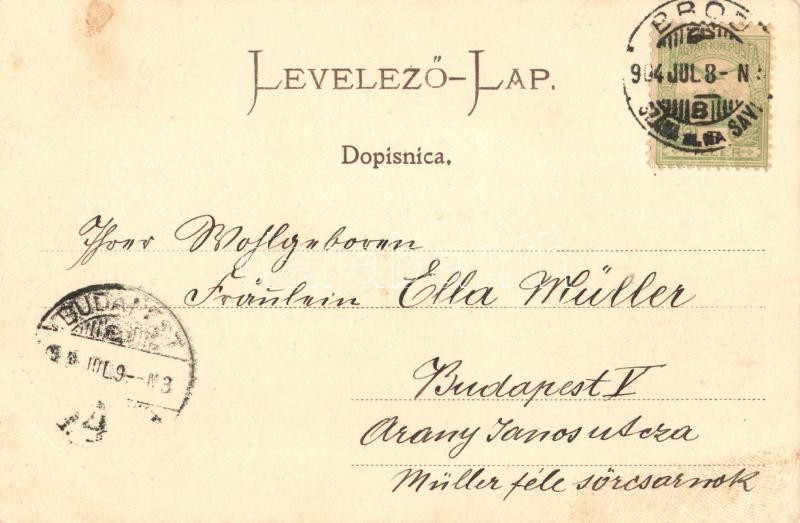 BROD
904 JUL. 8 - N
B
SAVI
MAGYAR KIR. POSTA
LEVELEZŐ-LAP.
Dopisnica.
Ihrer Wohlgeboren
Fräulein Ella Müller
Budapest V
Arany Janos utcza
Müller féle sörcsarnok
BUDAPEST
JUL. 9 - N 3